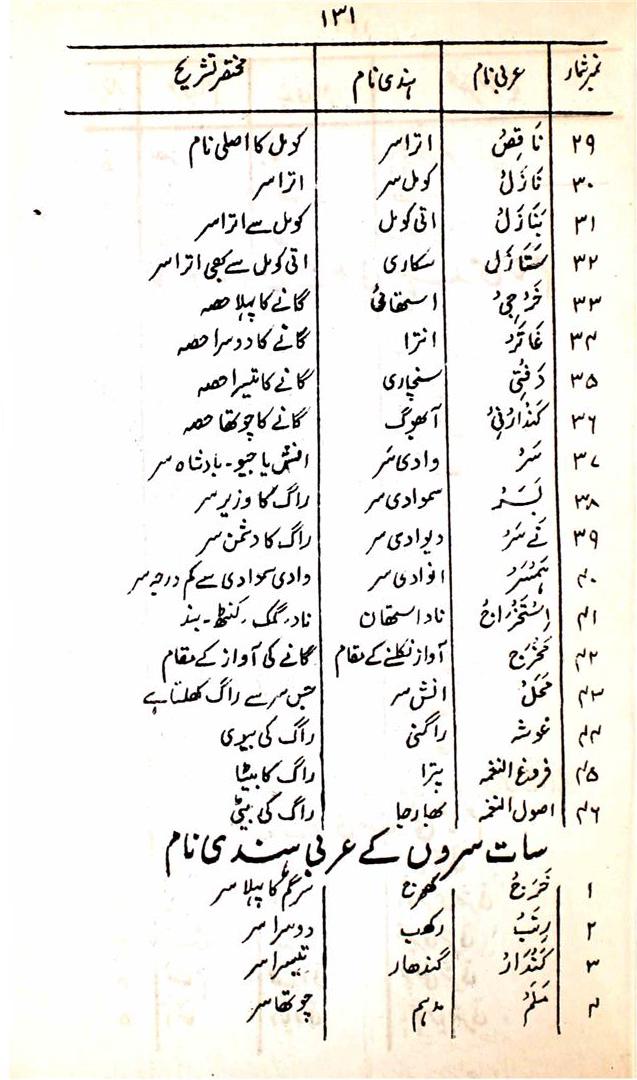 ۱۳۱
نمبر شمار عربی نام ہندی نام مختصر تشریح
۲۹ نَاقِصُ اترا سر کومل کا اصلی نام
۳۰ نَازَلُ کومل سر اترا سر
۳۱ بَنَازَلُ اتی کومل کومل سے اترا سر
۳۲ سَتَازَل سکاری اتی کومل سے بھی اترا سر
۳۳ خَرُجِیُ استھائی گانے کا پہلا حصہ
۳۴ غَاتَرُ انترا گانے کا دوسرا حصہ
۳۵ دَفْتِی سنچاری گانے کا تیسرا حصہ
۳۶ کَنْدَارُنِیُ آبھوگ گانے کا چوتھا حصہ
۳۷ سَرُ وادی سَر انش یا جیو۔ بادشاہ سر
۳۸ بَسَرُ سموادی سر راگ کا وزیر سر
۳۹ نَے سَرُ دیوادی سر راگ کا دشمن سر
۴۰ ہَمْسَرُ انوادی سر وادی سموادی سے کم درجہ سر
۴۱ اِسْتَخْرَاجُ ناد استھان ناد، گمک، کنٹھ۔ بند
۴۲ مَخْرَج آواز نکلنے کے مقام گانے کی آواز کے مقام
۴۳ مَحَلُ انش سر جس سر سے راگ کھلتا ہے
۴۴ غوشہ راگنی راگ کی بیوی
۴۵ فروغ النغمہ پترا راگ کا بیٹا
۴۶ اصول النغمہ بھارجا راگ کی بیٹی
سات سروں کے عربی ہندی نام
۱ خَرَجُ کھرج سرگم کا پہلا سر
۲ رِتَبُ رکھب دوسرا سر
۳ کَنْدَارُ گندھار تیسرا سر
۴ مَلَمُ مدہم چوتھا سر